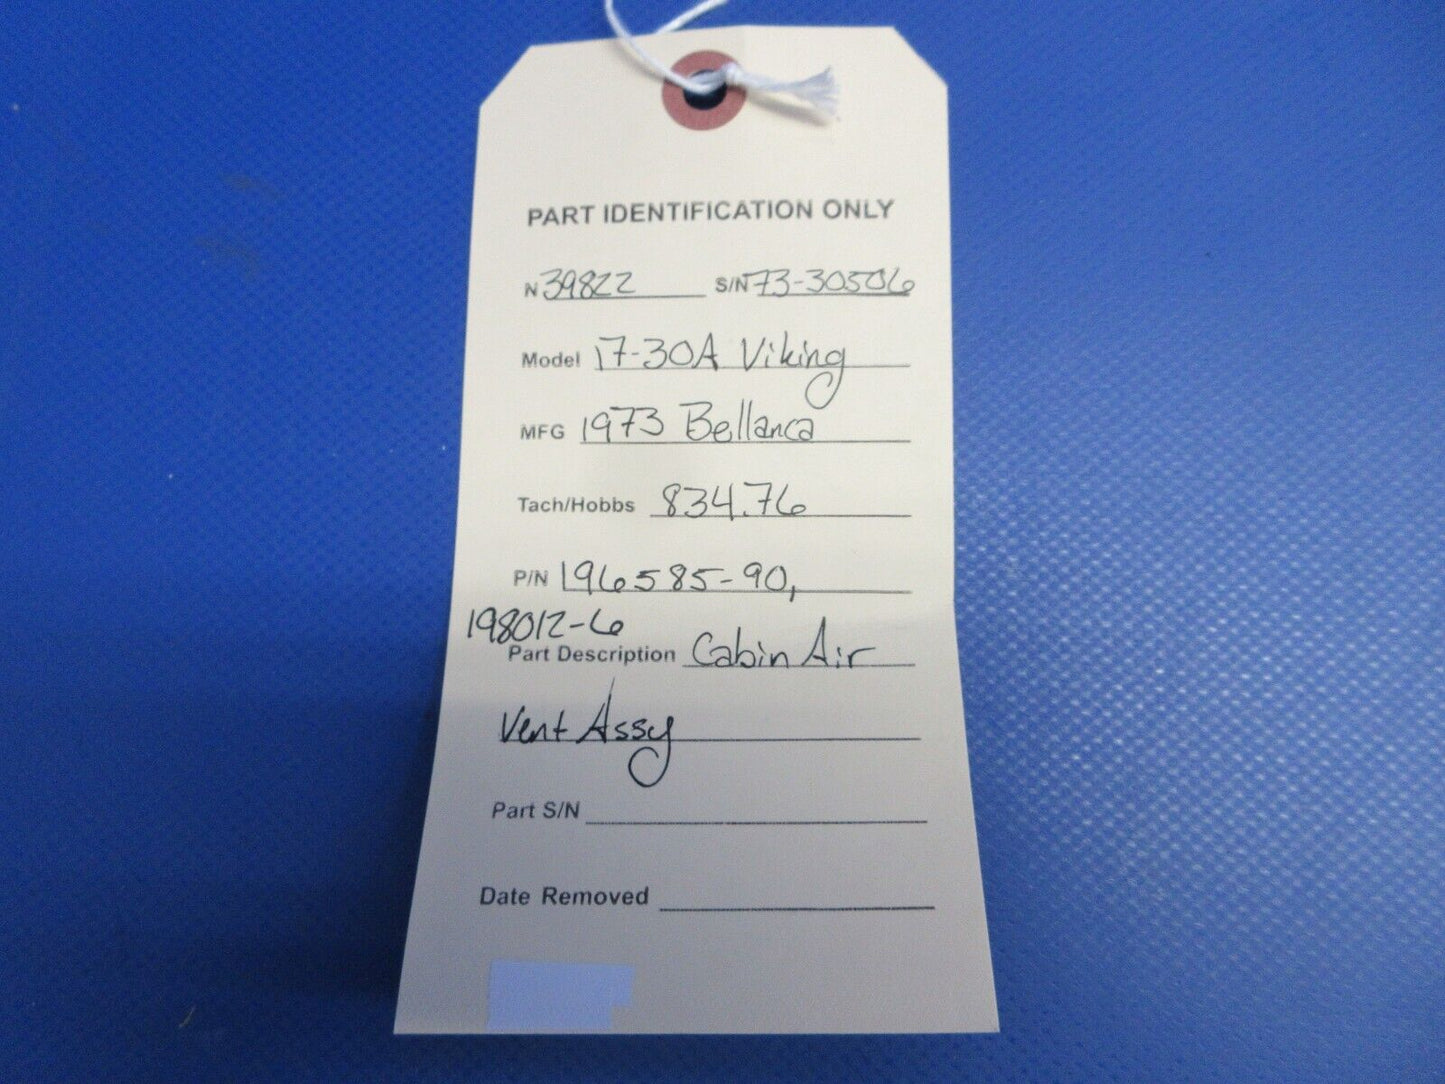 PART IDENTIFICATION ONLY
N 39822 S/N 73-30506
Model 17-30A Viking
MFG 1973 Bellanca
Tach/Hobbs 834.76
P/N 196585-90,
198012-6
Part Description Cabin Air
Vent Assy
Part S/N
Date Removed